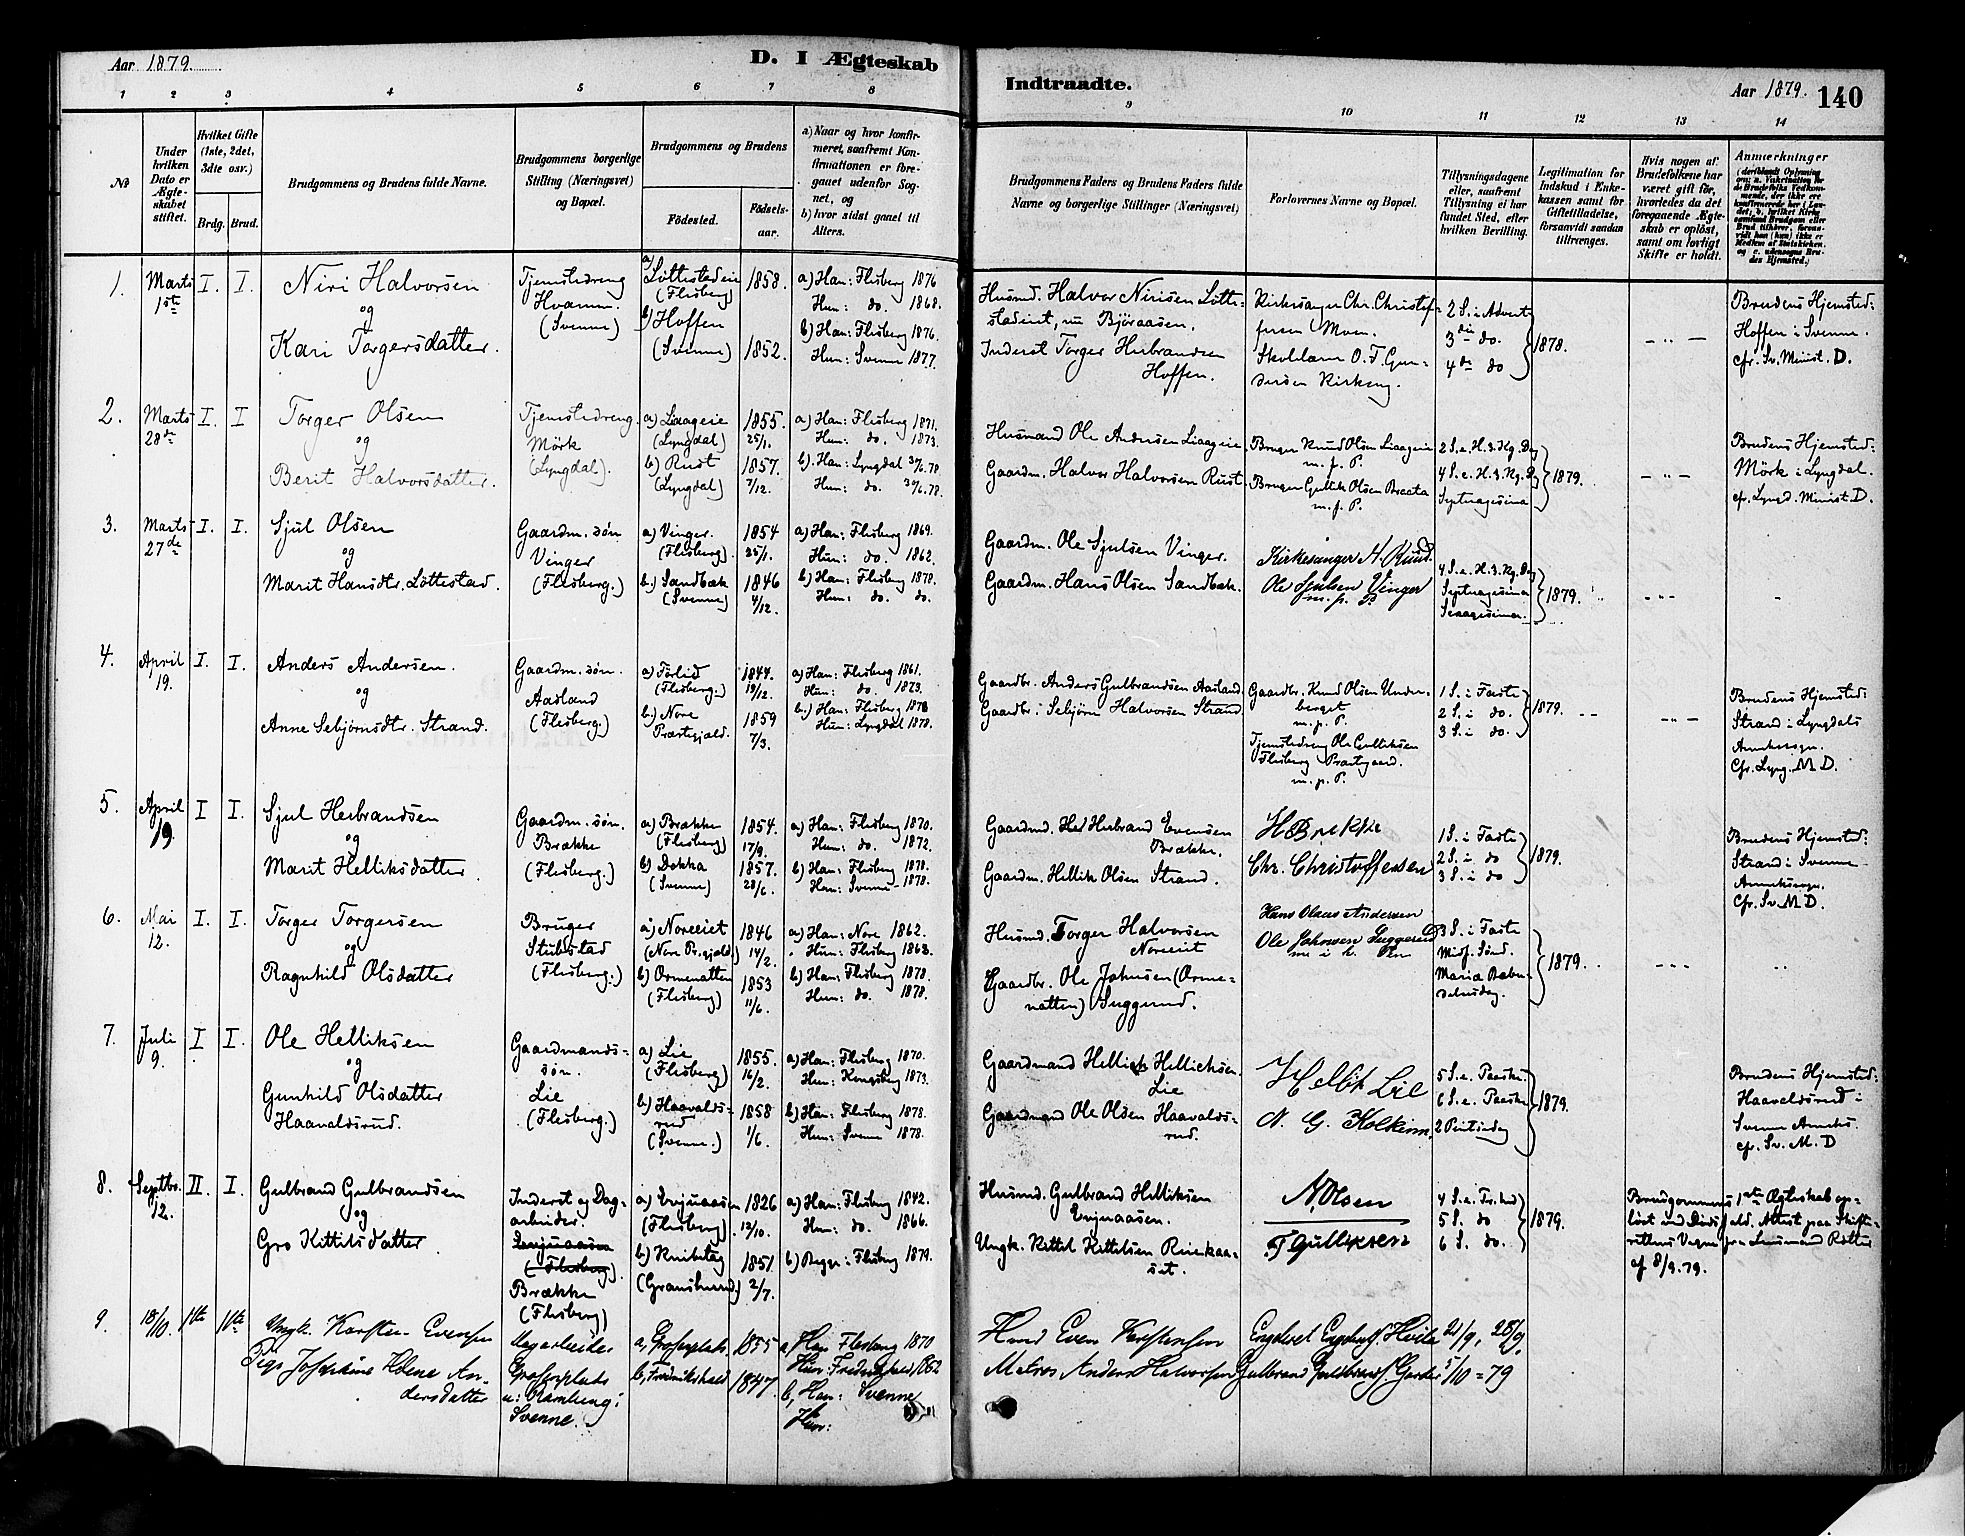 Aar 1879.
D. I Ægteskab
1 2 3 4 5 6 7 8
No
Under hvilken Dato er Ægteskabet stiftet.
Hvilket Gifte (1ste, 2det, 3die osv.)
Brdg. Brud.
Brudgommens og Brudens fulde Navne.
Brudgommens borgerlige Stilling (Næringsvei) og Bopæl.
Brudgommens og Brudens
Fødested.
Fødselsaar.
a) Naar og hvor konfirmeret, saafremt Konfirmationen er foregaaet udenfor Sognet, og
b) hvor sidst gaaet til Alters.
1. Marts 1ste I. I.
Niri Halvorsen
og
Kari Torgersdatter.
Tjenestedreng
Hvamm.
(Svenne)
a) Løttestadeie
(Flesberg)
b) Hoffen
(Svenne)
1858.
1852.
a) Han: Flesberg 1876
Hun: do 1868.
b) Han: Flesberg 1876.
Hun: Svenne 1877.
2. Marts 28de I. I
Torger Olsen
og
Berit Halvorsdatter.
Tjenestedreng.
Mörk
(Lyngdal).
a) Liaageie
(Lyngdal)
b) Rust
(Lyngdal)
1855.
25/1.
1857.
7/12.
a) Han: Flesberg 1871.
Hun: do. 1873.
b). Han: Lyngdal 30/6.78.
Hun: do. 30/6.78.
3. Marts 27de I. I.
Sjul Olsen
og
Marit Hansdtr. Löttestad.
Gaardm. sön
Vinger
(Flesberg.)
a) Vinger.
(Flesberg).
b.) Sandbæk
(Svenne)
1854
25/1.
1846
4/12.
a) Han: Flesberg 1869.
Hun: do. 1862.
b) Han: Flesberg 1878.
Hun: do. do.
4. April 19. I. I.
Anders Andersen.
og
Anne Sebjørnsdtr. Strand.
Gaardm. sön.
Aasland
(Flesberg.)
a) Förlid
(Flesberg.)
b.) Nore
Præstegjæld.
1844.
19/12.
1859
7/3.
a) Han: Flesberg 1861.
Hun: do 1873.
b.) Han: Flesberg 1878
Hun: Lyngdal 1878.
5. April 19. I I.
Sjul Herbrandsen
og
Marit Helliksdatter.
Gaardm. sön.
Brække
(Flesberg.)
a) Brække
(Flesberg)
b) Dokka
(Svenne)
1854.
17/9.
1857.
28/6.
a) Han: Flesberg 1870.
Hun: do. 1872.
b) Han: Flesberg 1878.
Hun: Svenne 1878.
6. Mai 12. I. I.
Torger Torgersen
og
Ragnhild Olsdatter
Bruger
Stubstad
(Flesberg.)
a) Noreeiet
(Nore Pr.gjæld.)
b) Ormenatten
(Flesberg)
1846
14/2.
1853
11/6.
a) Han: Nore 1862.
Hun: Flesberg 1863.
b) Han: Flesberg 1878.
Hun: do. 1878.
7. Juli 9. I I.
Ole Helliksen
og
Gunhild Olsdatter
Haavaldsrud.
Gaardmandssön.
Lie
(Flesberg.)
a) Lie
(Flesberg)
b) Haavaldsrud
(Svenne.)
1855.
16/2.
1858
1/6.
a) Han: Flesberg 1870.
Hun: Kongsberg 1873.
b) Han: Flesberg 1878.
Hun: Svenne 1878.
8. Septbr. 12. II. I.
Gulbrand Gulbrandsen
og
Gro Kittilsdatter.
Inderst og Dagarbeider.
Evjuaasen
(Flesberg).
Brække
(Flesberg)
a) Evjuaasen
(Flesberg)
b)
1826
12/10.
1851.
2/7.
a) Han: Flesberg 1842.
Hun: do. 1866.
b) Begge: Flesberg 1879.
9. 18/10. 1ste 1ste
Ungk. Karsten Evensen
Pige Josephine Helene Andersdatter
Dagarbeider
Svenne.
b, Fredrikshald
1855
1847.
a, Han Flesberg 1870
Hun: Fredrikshald 1862
b, Han: Svenne
Hun:
Indtraadte.
Aar 1879. 140
9 10 11 12 13 14
Brudgommens Faders og Brudens Faders fulde Navne og borgerlige Stillinger (Næringsvei)
Forlovernes Navne og Bopæl.
Tillysningsdagene eller, saafremt Tillysning ei har fundet Sted, efter hvilken Bevilling.
Legitimation for Indskud i Enkekassen samt for Giftetilladelse, forsaavidt saadan tiltrænges.
Hvis nogen af Brudefolkene har været gift før, hvorledes da det foregaaende Ægteskab er opløst, samt om lovligt Skifte er holdt.
Anmærkninger
Husmd. Halvor Nirisen Löttestadeiet, nu Björaasen.
Inderst Torger Herbrandsen
Hoffen.
Kirkesanger Chr. Christoffersen Moen.
Skolelærer O. T. Gundersen Kirkeng.
2 S. i Advent
3die do.
4de do
1878.
Brudens Hjemsted:
Hoffen i Svenne.
cfr. Sv. Minist. D.
Husmand Ole Andersen Liaageie
Gaardm. Halvor Halvorsen Rust.
Bruger Knud Olsen Liaageie
m. p. P.
Bruger Gullik Olsen Braata
m. p. P.
2 S. e. H. 3. Kg. Dag
4 S. e. H. 3. Kg. D.
Septuagesima
1879.
Brudens Hjemsted:
Mörk i Lyngdal.
cf. Lyngd. Minist. D.
Gaardm. Ole Sjulsen Vinger.
Gaardm. Hans Olsen Sandbæk.
Kirkesanger N. Ruud.
Ole Sjulsen Vinger
m. p. P.
4 S. e. H. 3. Kg. Dag
Septuagesima
Sexagesima.
1879.
Gaardbr. Anders Gulbrandsen Aasland.
Gaardbr. Sebjörn Halvorsen Strand.
Gaardbr. Knud Olsen Underberget
m. p. P.
Tjenestedreng Ole Gulliksen
Flesberg Præstgaard.
m. p. P.
1 S. i Faste
2 S. i do.
3 S. i do.
1879.
Brudens Hjemsted:
Strand i Lyngdals
Annexsogn.
Cfr. Lyng. M D.
Gaardmd. Herbrand Evensen
Brække.
Gaardm. Hellik Olsen Strand.
H Brekke
Chr. Christoffersen
1 S. i Faste
2 S. i do
3 S. i do
1879.
Brudens Hjemsted:
Strand i Svenne
Annexsogn.
Cfr. Sv. M D.
Husmd. Torger Halvorsen
Noreeiet
Gaardbr. Ole Johnsen (Ormenatten) Suggerud.
Hans Olaus Andersen
Ole Johnsen Suggerud
3 S. i Faste
Midf. Sönd.
Mariæ Bebudelsesdag.
1879.
Gaardmand Hellick Hellicksen.
Lie
Gaardmand Ole Olsen Haavaldsrud.
Hellik Lie
N. G. Kolkinn.
5 S. e. Paaske.
6 S. e. Paaske
2 Pintsedag
1879.
Brudens Hjemsted:
Haavaldsrud i
Svenne Annexs.
cfr. Sv. M. D
Husmd. Gulbrand Helliksen
Evjuaasen.
Ungk. Kittil Kittilsen
N. Olsen
T Gulliksen
4 S. e. Tr.
5 S. do
6 S. do.
1879.
Brudgommens 1ste Ægteskab oplöst ved Dödsfald. Attest paa Skifterettens Vegne fra Lensmand
af 8/9.79.
Husmd Even Karstensen
Matros Anders Halvorsen
21/9, 28/9,
5/10 = 79